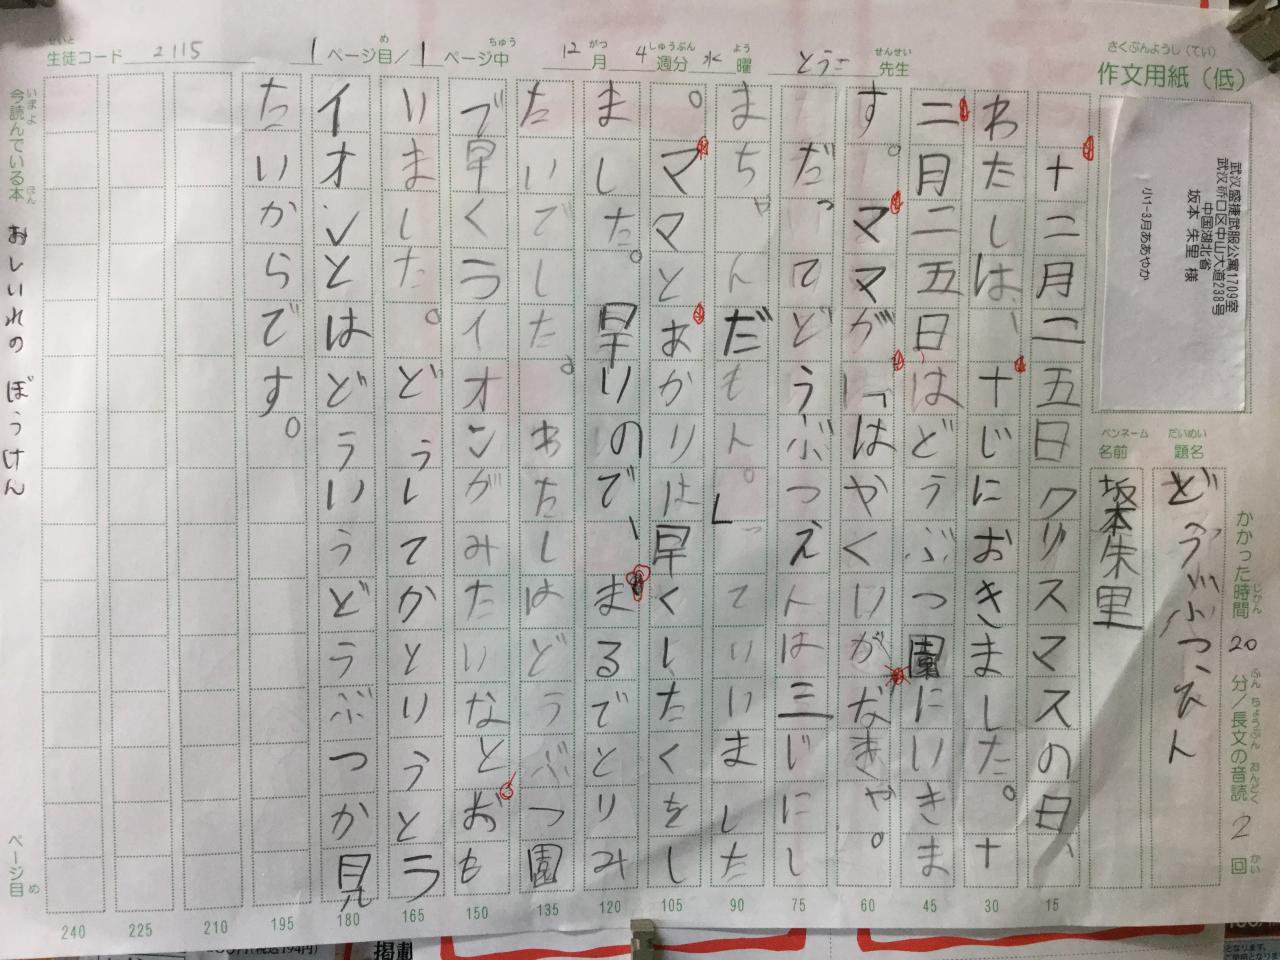 さくぶんようし(てい)
作文用紙(低)
生徒コード 2115
1ページ目/1ページ中
12月 4週分 水曜
とうこ 先生
武汉盛捷武服公寓1709室
武汉硚口区中山大道238号
中国湖北省
坂本 朱里 様
小1-3月ああやか
だいめい
題名
どうぶつえん
ペンネーム
名前
坂本朱里
かかった時間 20 分/長文の音読 2 回
十二月二五日クリスマスの日、
わたしは、十じにおきました。十
二月二五日はどうぶつ園にいきま
す。ママが「はやくしがなきゃ。
だってどうぶつえんは三じにし
まちゃんだもん。」っていいました
。ママとあかりは早くしたくをし
ました。早りので、まるでとりみ
たいでした。わたしはどうぶつ園
で早くライオンがみたいなとおも
いました。どうしてかとりうとラ
イオンとはどういうどうぶつか見
たいからです。
15
30
45
60
75
90
105
120
135
150
165
180
195
210
225
240
今読んでいる本 おしいれのぼうけん
ページ目
掲載